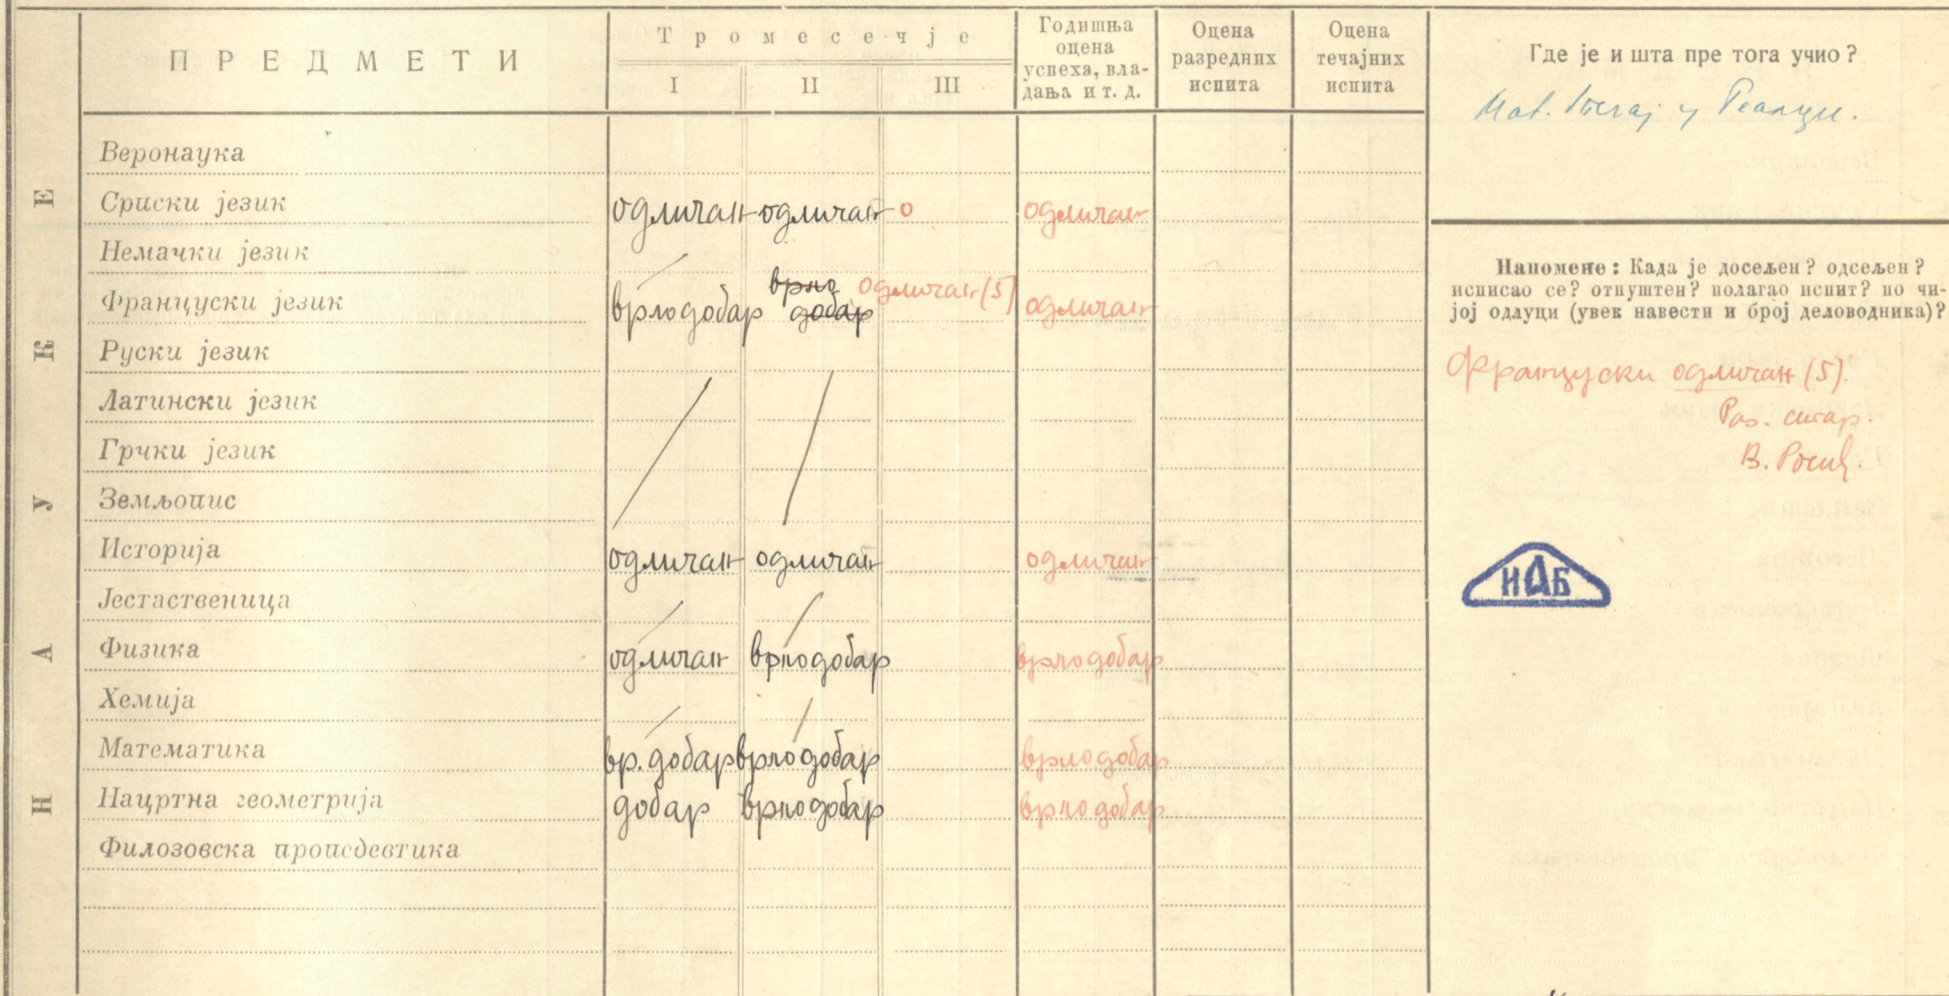 ПРЕДМЕТИ
Тромесечје
I II III
Годишња оцена успеха, вла-дања и т. д.
Оцена разредних испита
Оцена течајних испита
Где је и шта пре тога учио?
у
НАУКЕ
Веронаука
Српски језик одличан одличан о одличан
Немачки језик
Француски језик врлодобар врло добар одличан (5) одличан
Руски језик
Латински језик
Грчки језик
Земљопис
Историја одличан одличан одличан
Јестаственица
Физика одличан врлодобар врлодобар
Хемија
Математика вр. добар врлодобар врлодобар
Нацртна геометрија добар врлодобар врлодобар
Филозовска пропедевтика
Напомене: Када је досељен? одсељен?
исписао се? отпуштен? полагао испит? по чи-
јој одлуци (увек навести и број деловодника)?
Француски одличан (5).
Раз. стар.
В. Росић.
ИАБ